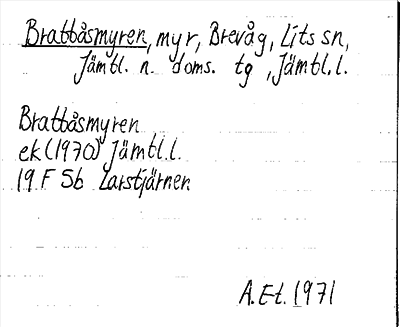 Brattåsmyren, myr, Brevåg, Lits sn,
Jämtl. n. doms. tg, Jämtl. l.
Brattåsmyren
ek (1970) Jämtl. l.
19 F 5b Larstjärnen
A. Et. 1971